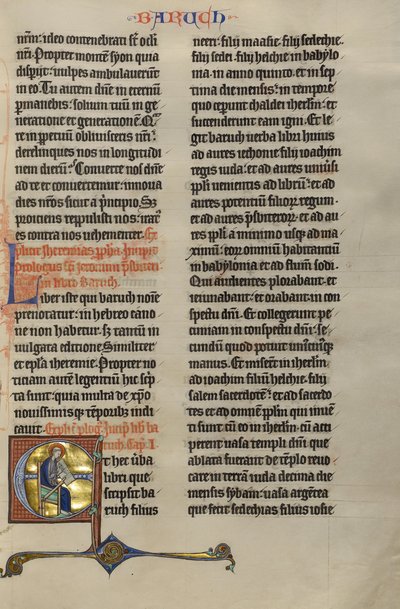 BARUCH
nr̄m: ideo contenebrati st̄ oc̄li
nr̄i. Propter montem syon quia
disp̄ijt: uulpes ambulauerunt
in eo. Tu autem dn̄e in eternū
permanebis: solium tuū in ge
neratione et generationem. Qr̄e
in ꝑpetuū obliuisceris nr̄i:
derelinques nos in longitudi
nem dierū? Conuerte nos dn̄e
ad te et conuertemur: innoua
dies nr̄os sicut a pͥncipio. Sꝫ
proiciens reppulisti nos: irat᷒
es contra nos uehementer. Ex
plicit iheremias ꝓph̄a. Incipit
prologus sc̄i ieronimi pr̄sbiteri
in libro baruch.
Liber iste qui baruch noīe
prenotatur: in hebreo cano
ne non habetur. Sꝫ tantū in
uulgata editione. Similiter
et epl̄a iheremie. Propter no
ticiam autem legentiū hic scͥp
ta sunt: quia multa de xp̄o
nouissimisqꝫ temporibꝫ indi
cant. Expl̄i ꝓlog᷒. Incipi lib̄ ba
ruch. Cap̄. I.
Et hec ūba
libri que
scripsit ba
ruch filius
neeri: filij maasie: filij sedechie:
filij sedei: filij helchie in babylo
nia. in anno quinto. et in sep
tima die mensis: in tempore
quo ceperunt chaldei ihrl̄m: et
succenderunt eam igni. Et le
git baruch uerba libri huius
ad aures iechonie filij ioachim
regis iuda: et ad aures uniūsi
ppl̄i uenientis ad librū: et ad
aures potentium filioꝝ regum.
et ad aures pr̄sbiteroꝝ: et ad au
res ppl̄i a minimo usqꝫ ad ma
ximū: eoꝝ omniū habitantiū
in babylonia et ad flum̄ sodi.
Qui audientes plorabant: et
ieiunabant: et orabant in con
spectu dn̄i. Et collegerunt pe
cuniam in conspectu dn̄i: se
cundū quod potuit uniūcuiusqꝫ
manus. Et miserunt in ihrl̄m
ad ioachim filiū helchie: filij
salem sacerdotē: et ad sacerdo
tes et ad omnem ppl̄m qui inuē
ti sunt cū eo in ihrl̄m: cū acci
perent uasa templi dn̄i que
ablata fuerant de templo reuo
care in terrā iuda decima die
mensis syban: uasa argētea
que fecit sedechias filius iosie